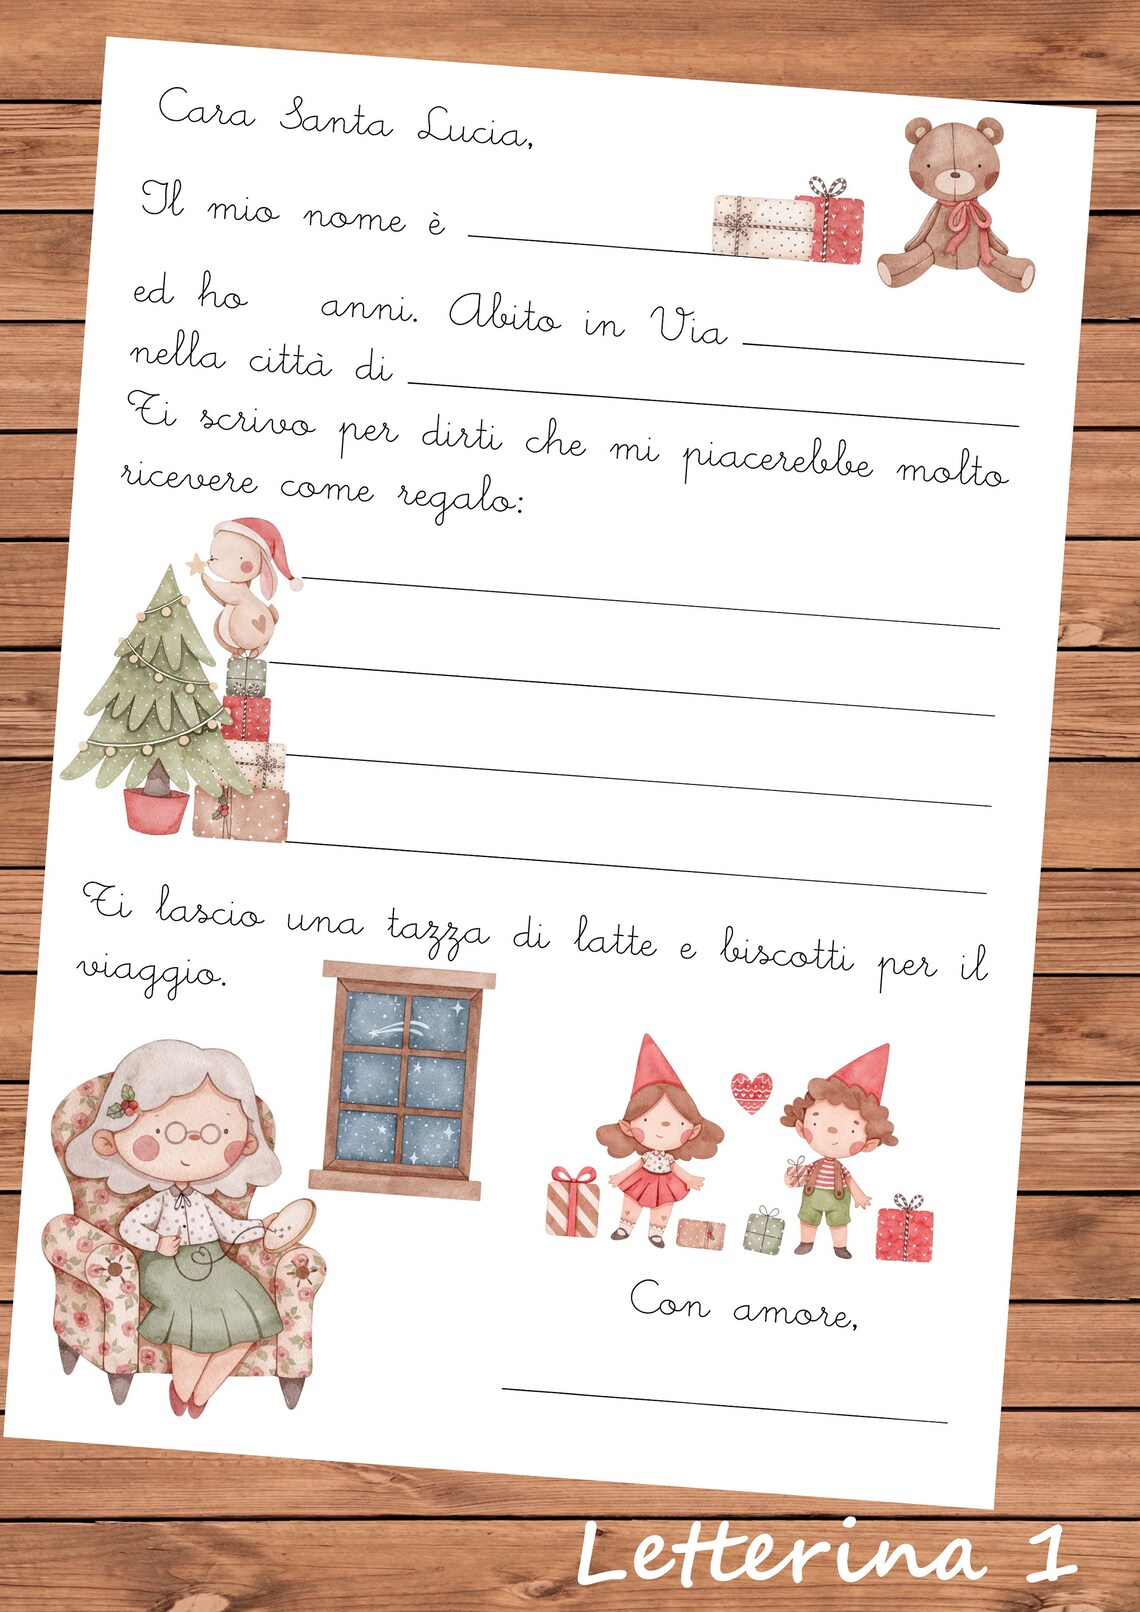 Cara Santa Lucia,
Il mio nome è
ed ho anni. Abito in Via
nella città di
Ti scrivo per dirti che mi piacerebbe molto
ricevere come regalo:
Ti lascio una tazza di latte e biscotti per il
viaggio.
Con amore,
Letterina 1